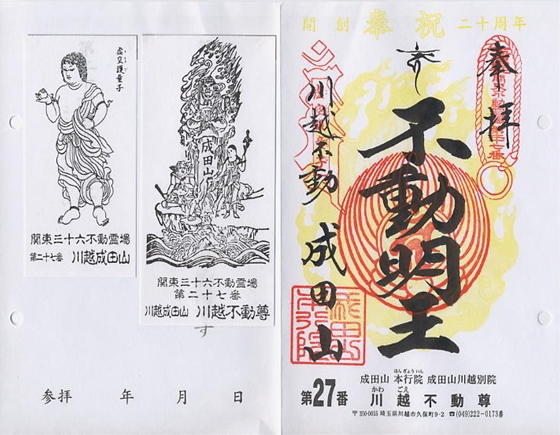 虚空護童子
関東三十六不動霊場
第二十七番 川越成田山
成田山
関東三十六不動霊場
第二十七番
川越成田山 川越不動尊
す
参拝 年 月 日
開創 奉祝 二十周年
奉拝
不動明王
川越不動 成田山
成田山 本行院 成田山川越別院
ほんぎょういん
かわ ごえ
第27番 川越不動尊
〒350-0055 埼玉県川越市久保町9-2 ☎(049)222-0173番